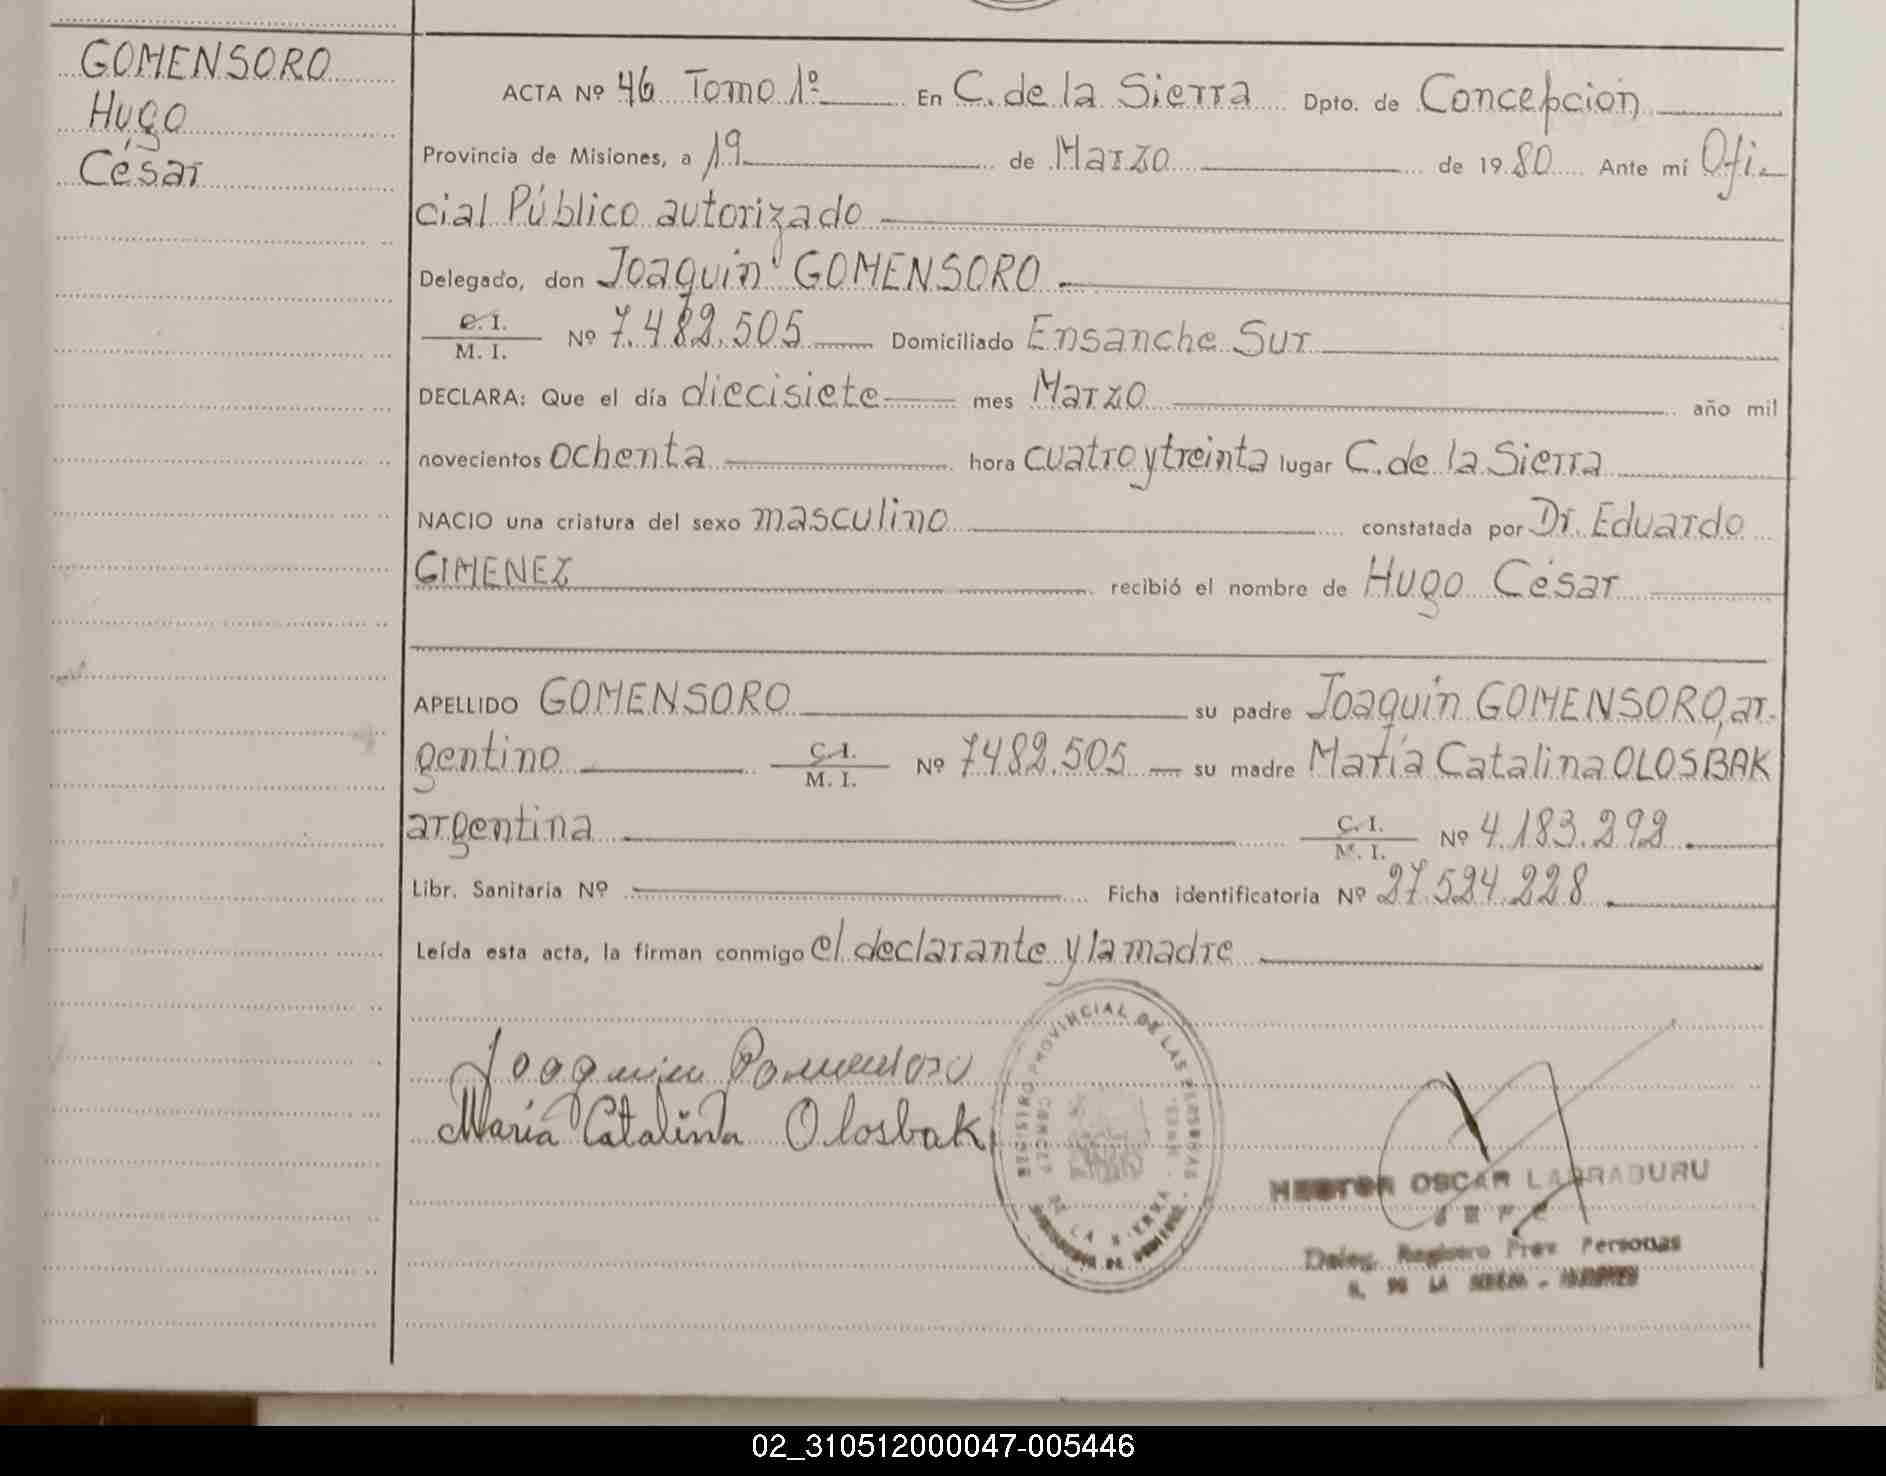 GOMENSORO
Hugo
César
ACTA Nº 46 Tomo 1º En C. de la Sierra Dpto. de Concepción
Provincia de Misiones, a 19 de Marzo de 1980 Ante mí Ofi-
cial Público autorizado
Delegado, don Joaquin GOMENSORO
C. I.
M. I. Nº 7.482.505 Domiciliado Ensanche Sur
DECLARA: Que el día diecisiete mes Marzo año mil
novecientos ochenta hora cuatro y treinta lugar C. de la Sierra
NACIO una criatura del sexo masculino constatada por Dr. Eduardo
GIMENEZ recibió el nombre de Hugo César
APELLIDO GOMENSORO su padre Joaquín GOMENSORO, ar-
gentino C. I.
M. I. Nº 7482.505 su madre María Catalina OLOSBAK
argentina C. I.
M. I. Nº 4.183.292
Libr. Sanitaria Nº Ficha identificatoria Nº 27.524.228
Leída esta acta, la firman conmigo el declarante y la madre
Joaquin Gomensoro
María Catalina Olosbak
REGISTRO PROVINCIAL DE LAS PERSONAS
DE LA SIERRA
HECTOR OSCAR LARRABURU
JEFE
Deleg. Registro Prov Personas
C. DE LA SIERRA - MISIONES
02_310512000047-005446